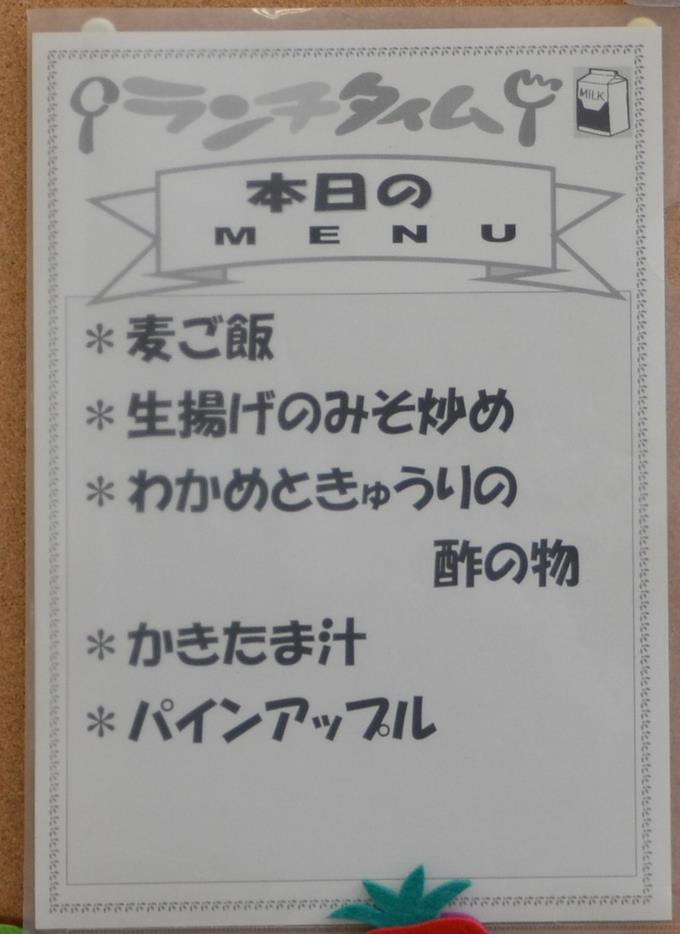 ランチタイム
MILK
本日の
MENU
＊麦ご飯
＊生揚げのみそ炒め
＊わかめときゅうりの
酢の物
＊かきたま汁
＊パインアップル